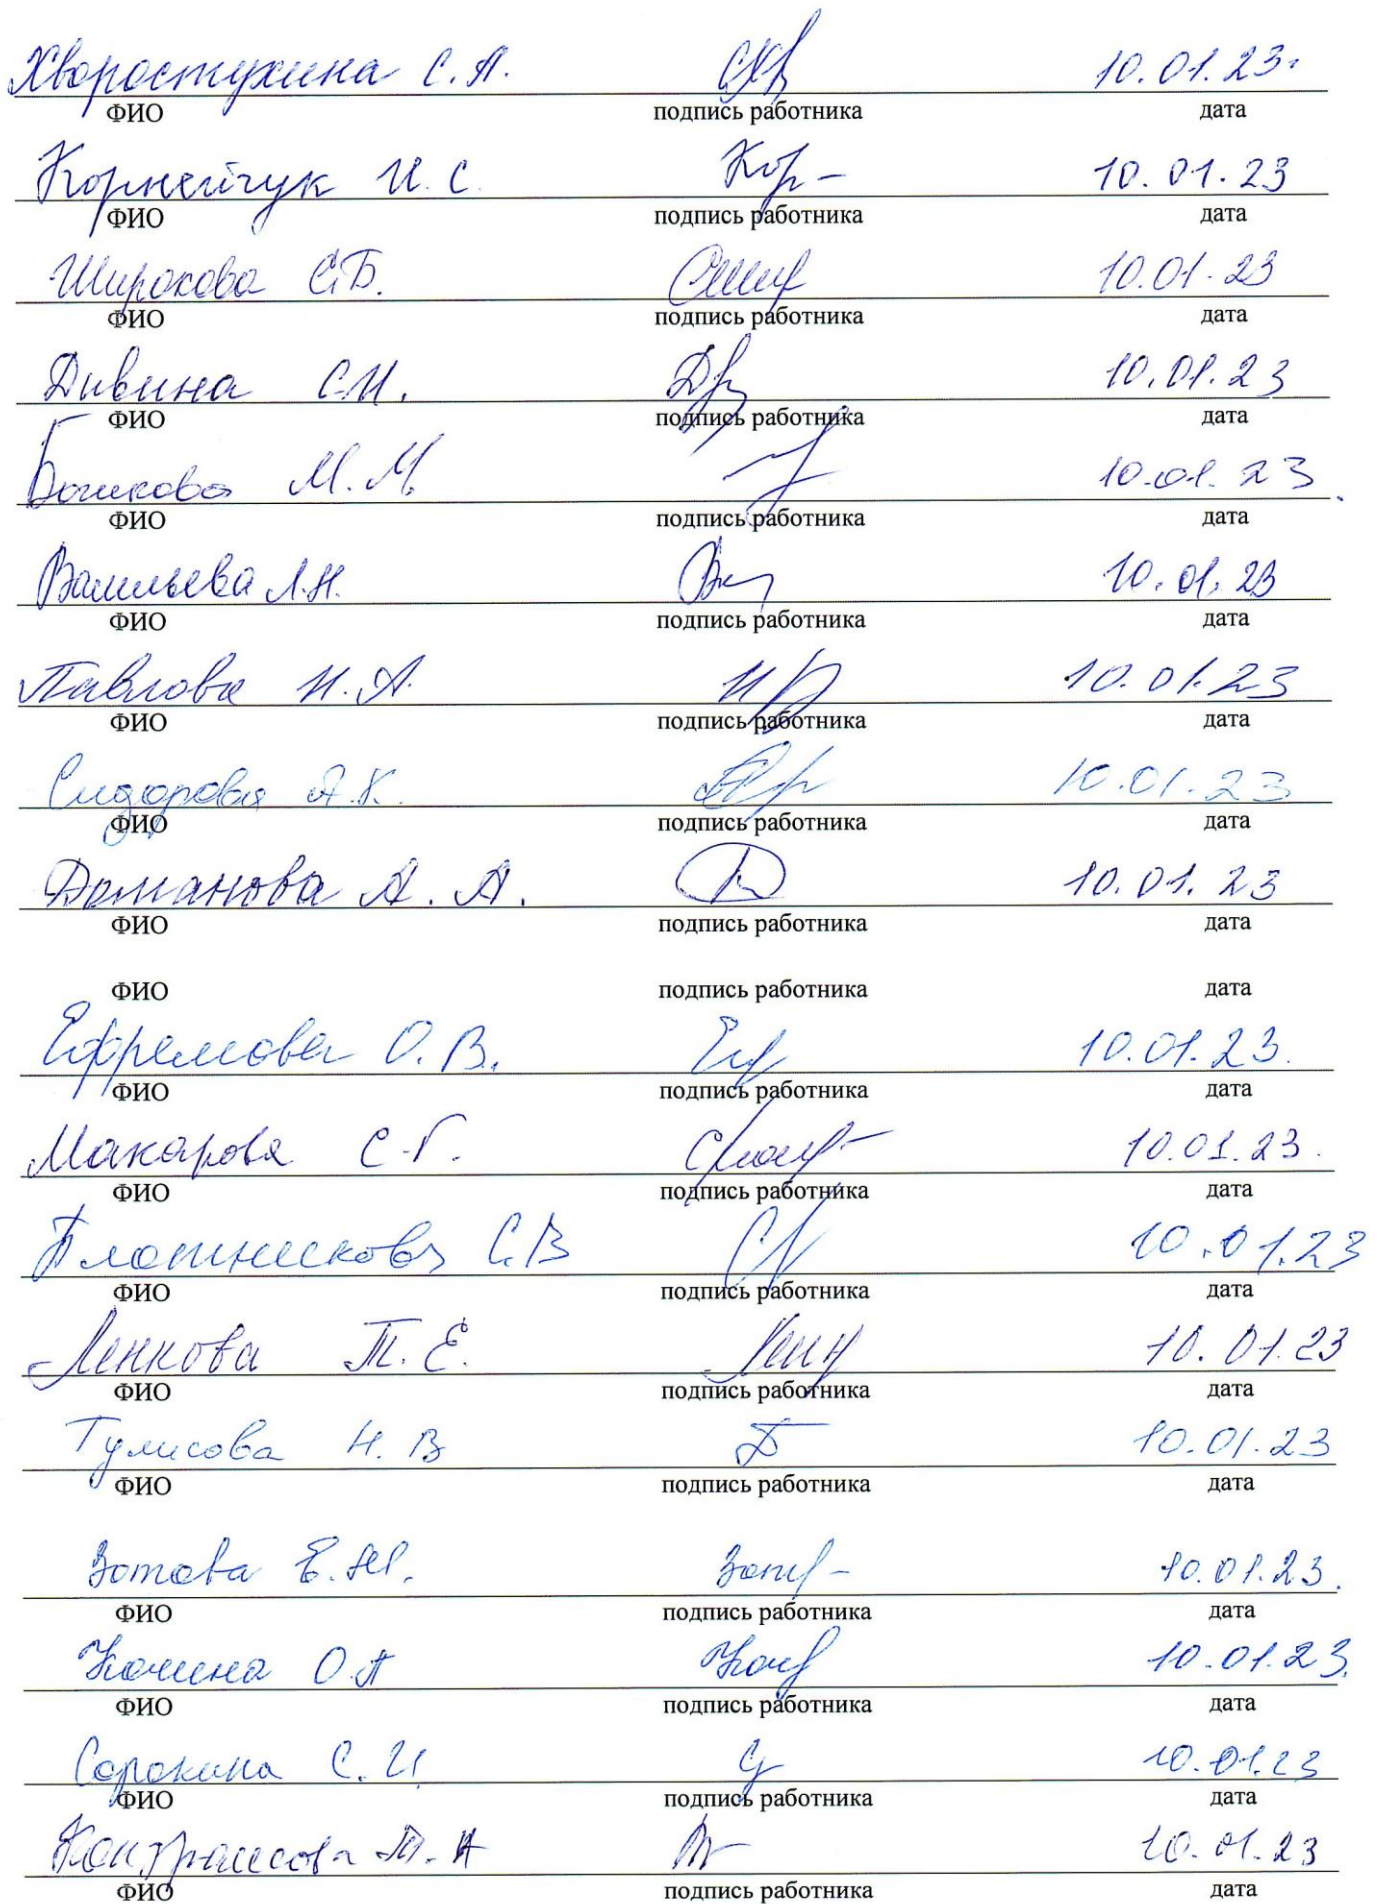 Хворостухина С.А. 10.01.23г
ФИО подпись работника дата
Корнейчук И.С. Кор- 10.01.23
ФИО подпись работника дата
Широкова С.Б. Сшир 10.01.23
ФИО подпись работника дата
Дивина С.И. 10.01.23
ФИО подпись работника дата
М.М. 10.01.23.
ФИО подпись работника дата
Васильева Л.Н. 10.01.23
ФИО подпись работника дата
Павлова Н.А. 10.01.23
ФИО подпись работника дата
Сидорова А.К. 10.01.23
ФИО подпись работника дата
Доманова А.А. 10.01.23
ФИО подпись работника дата
ФИО подпись работника дата
Ефремова О.В. 10.01.23.
ФИО подпись работника дата
Макарова С.Г. 10.01.23.
ФИО подпись работника дата
Плотникова С.В 10.01.23
ФИО подпись работника дата
Ленкова Т.Е. 10.01.23
ФИО подпись работника дата
Тулисова Н.В 10.01.23
ФИО подпись работника дата
Зотова Е.М. 10.01.23.
ФИО подпись работника дата
Кочина О.А 10.01.23.
ФИО подпись работника дата
Сорокина С.И. 10.01.23
ФИО подпись работника дата
10.01.23
ФИО подпись работника дата